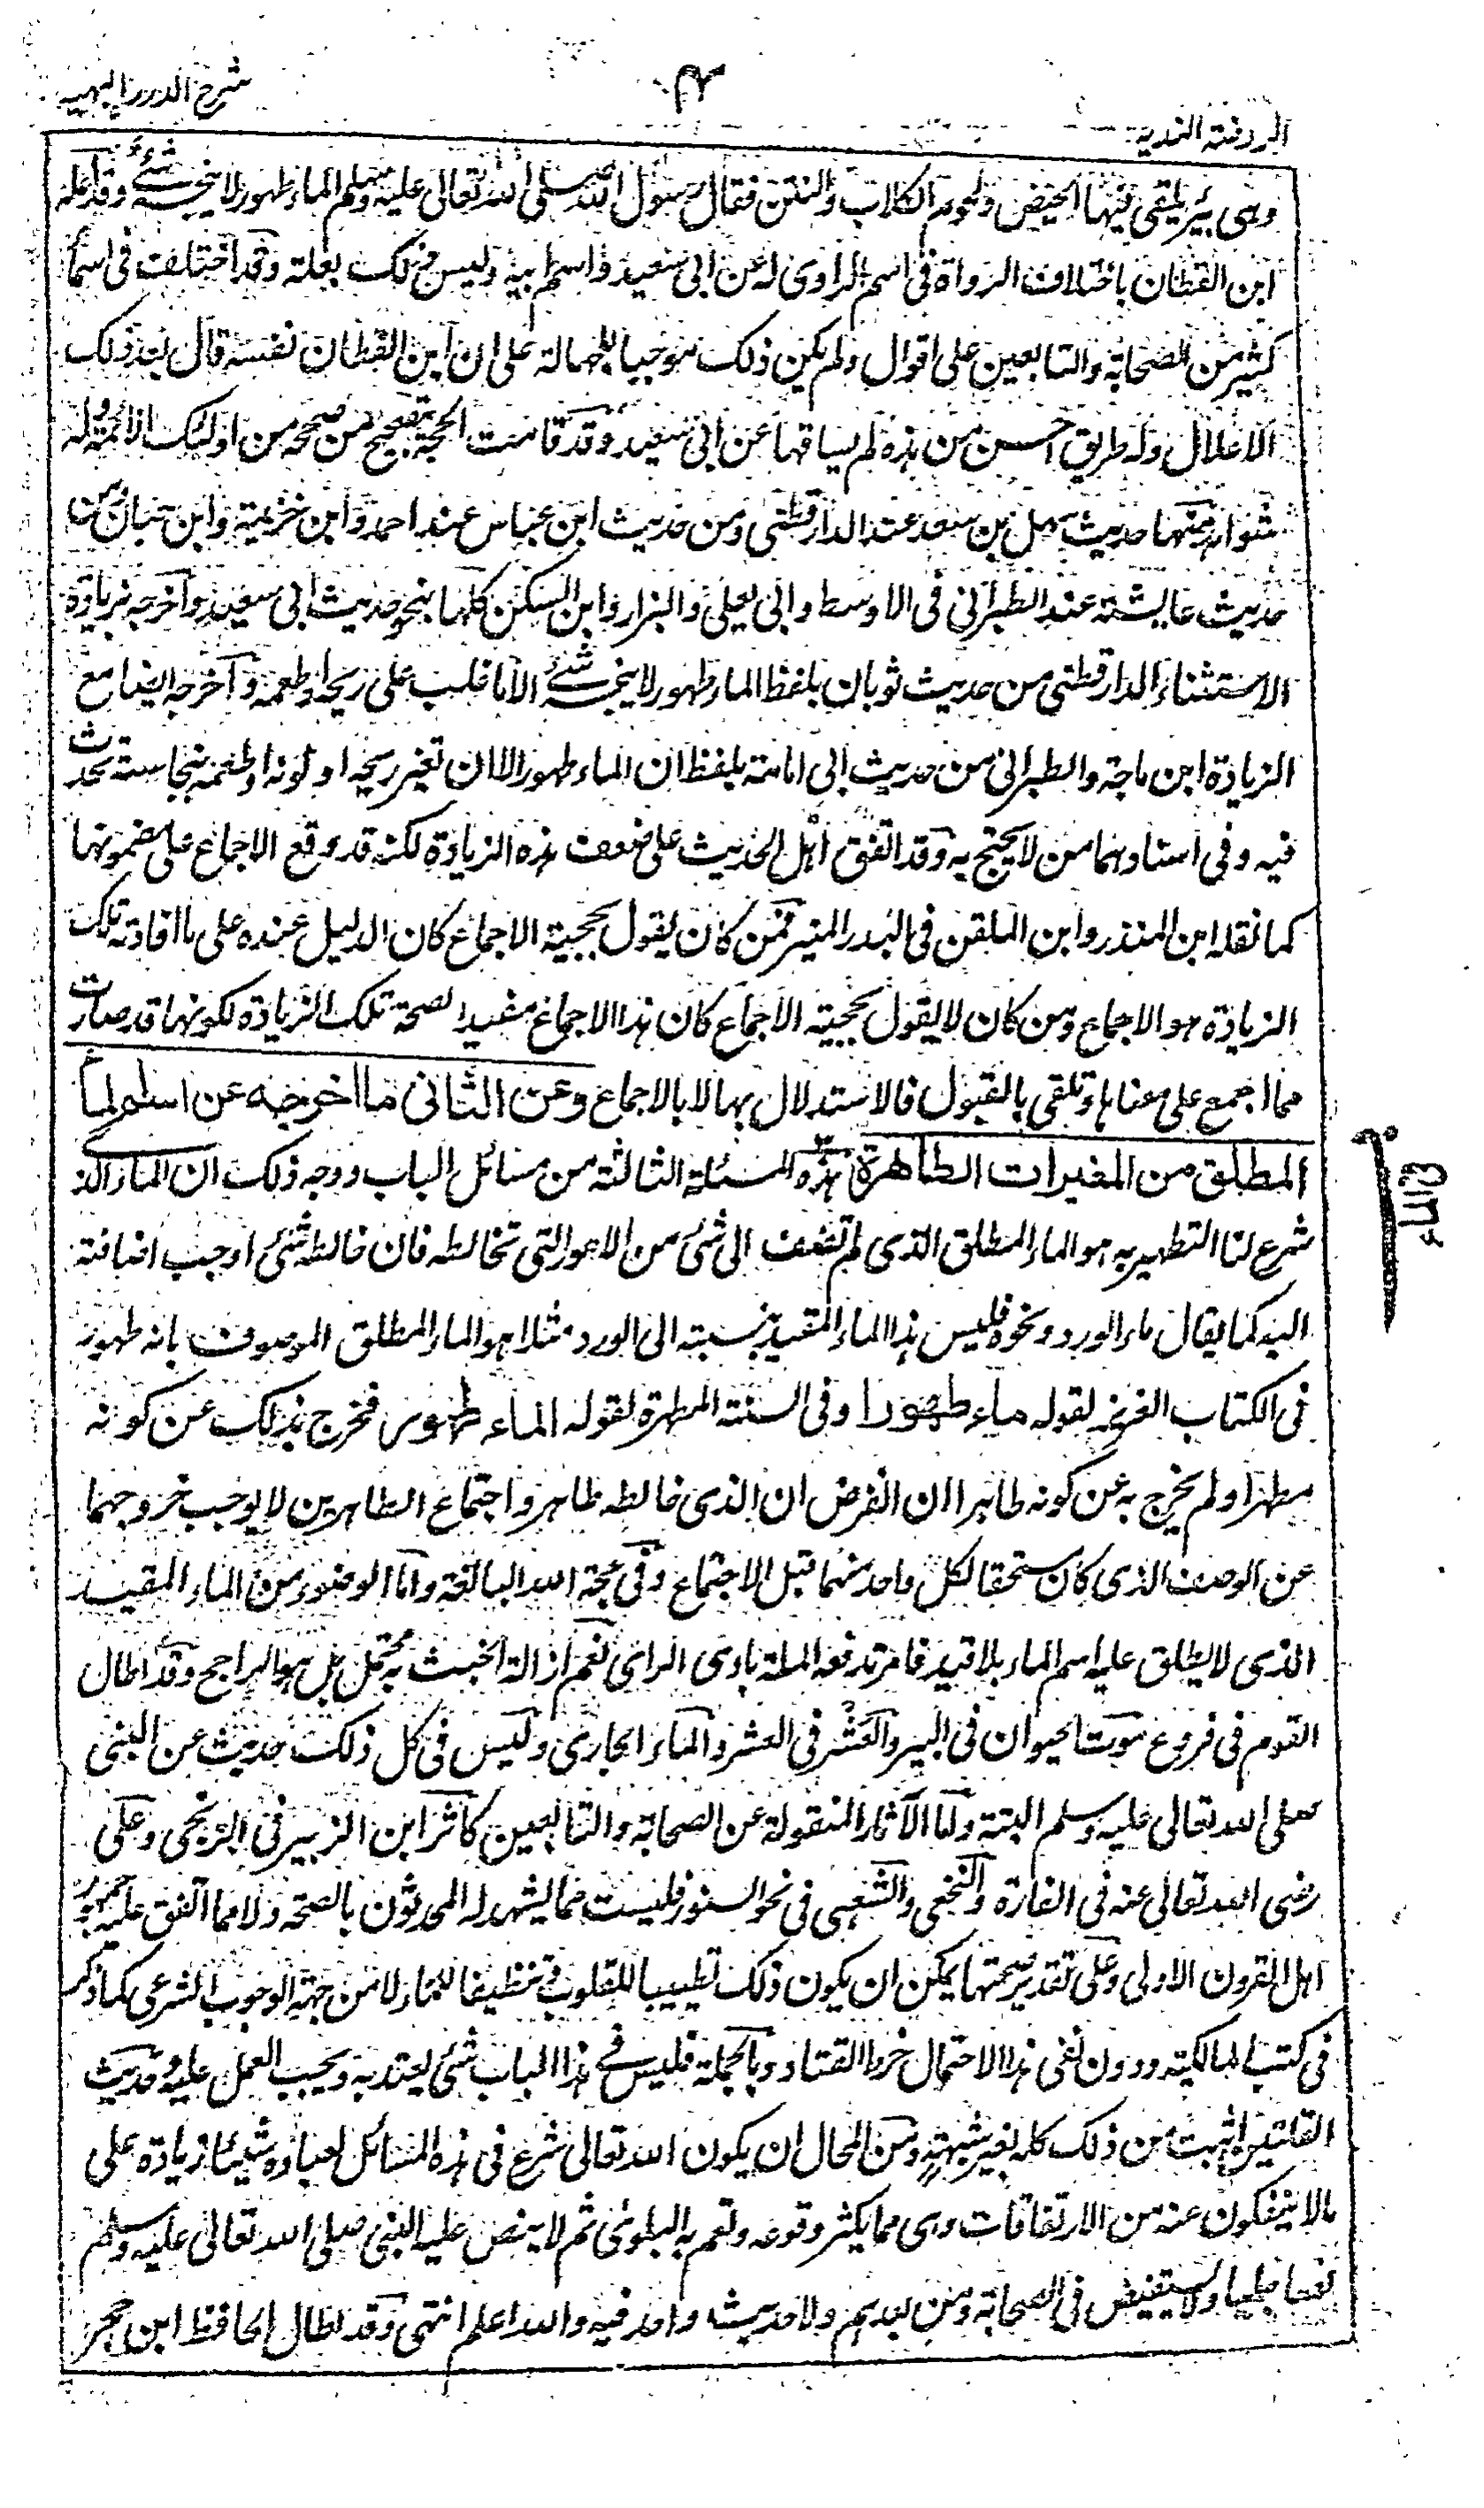 الروضة الندية
٤
شرح الدرر البهية
وهى بئر يلقى فيها الحيض ولحوم الكلاب والنتن فقال رسول الله صلى الله تعالى عليه وسلم الماء طهور لا ينجسه شئ وقد اعله
ابن القطان باختلاف الرواة فى اسم الراوى له عن ابى سعيد واسم ابيه وليس ذلك بعلة وقد اختلف فى اسماء
كثير من الصحابة والتابعين على اقوال ولم يكن ذلك موجبا للجهالة على ان ابن القطان نفسه قال بعد ذلك
الاعلال وله طريق احسن من هذه ثم ساقها عن ابى سعيد وقد قامت الحجة بتصحيح من صححه من اولئك الائمة وله
شواهد منها حديث سهل بن سعد عند الدارقطنى ومن حديث ابن عباس عند احمد وابن خزيمة وابن حبان ومن
حديث عايشة عند الطبرانى فى الاوسط وابى يعلى والبزار وابن السكن كلها بنحو حديث ابى سعيد واخرجه بزيادة
الاستثناء الدارقطنى من حديث ثوبان بلفظ الماء طهور لا ينجسه شئ الا ما غلب على ريحه او طعمه واخرجه ايضا مع
الزيادة ابن ماجة والطبرانى من حديث ابى امامة بلفظ ان الماء طهور الا ان تغير ريحه او لونه او طعمه بنجاسة تحدث
فيه وفى اسنادهما من لا يحتج به وقد اتفق اهل الحديث على ضعف هذه الزيادة لكنه قد وقع الاجماع على مضمونها
كما نقله ابن المنذر وابن الملقن فى البدر المنير فمن كان يقول بحجية الاجماع كان الدليل عنده على ما افادته تلك
الزيادة هو الاجماع ومن كان لا يقول بحجية الاجماع كان هذا الاجماع مفيدا لصحة تلك الزيادة لكونها قد صارت
مما اجمع على معناها وتلقى بالقبول فالاستدلال بها لا بالاجماع وعن الثانى ما اخرجه عن اسم الماء
المطلق من المغيرات الطاهرة هذه المسئلة الثالثة من مسائل الباب ووجه ذلك ان الماء الذى
شرع لنا التطهير به هو الماء المطلق الذى لم تضف الى شئ من الامور التى تخالطه فان خالطه شئ اوجب اضافته
اليه كما يقال ماء الورد ونحوه فليس هذا الماء المقيد بنسبته الى الورد مثلا هو الماء المطلق الموصوف بانه طهور
فى الكتاب العزيز لقوله ماء طهورا وفى السنة المطهرة لقوله الماء طهور فخرج بذلك عن كونه
مطهرا ولم يخرج به عن كونه طاهرا اذ الفرض ان الذى خالطه طاهر واجتماع الطاهرين لا يوجب خروجهما
عن الوصف الذى كان مستحقا لكل واحد منهما قبل الاجتماع وفى حجة الله البالغة واما الوضوء من الماء المقيد
الذى لا يطلق عليه اسم الماء بلا قيد فامر تدفعه الملة بادى الراى نعم ازالة الخبث به محتمل بل هو الراجح وقد اطال
القوم فى فروع موت الحيوان فى البير والعشر فى العشر والماء الجارى وليس فى كل ذلك حديث عن النبى
صلى الله تعالى عليه وسلم البتة واما الآثار المنقولة عن الصحابة والتابعين كاثر ابن الزبير فى الزنجى وعلى
رضى الله تعالى عنه فى الفارة والنخعى والشعبى فى نحو السنور فليست مما يشهد له المحدثون بالصحة ولا مما اتفق عليه جمهور
اهل القرون الاولى وعلى تقدير صحتها يمكن ان يكون ذلك تطييبا للقلوب وتنظيفا للماء لا من جهة الوجوب الشرعى كما ذكر
فى كتب المالكية ودون نفى هذا الاحتمال خرط القتاد وبالجملة فليس فى هذا الباب شئ يعتد به ويجب العمل عليه وحديث
القلتين اثبت من ذلك كله بغير شبهة ومن المحال ان يكون الله تعالى شرع فى هذه المسائل لعباده شيئا زيادة على
مالا ينفكون عنه من الارتفاقات وهى مما يكثر وقوعه وتعم به البلوى ثم لا ينص عليه النبى صلى الله تعالى عليه وسلم
نصا جليا ولا يستفيض فى الصحابة ومن بعدهم ولا حديث واحد فيه والله اعلم انتهى وقد اطال الحافظ ابن حجر